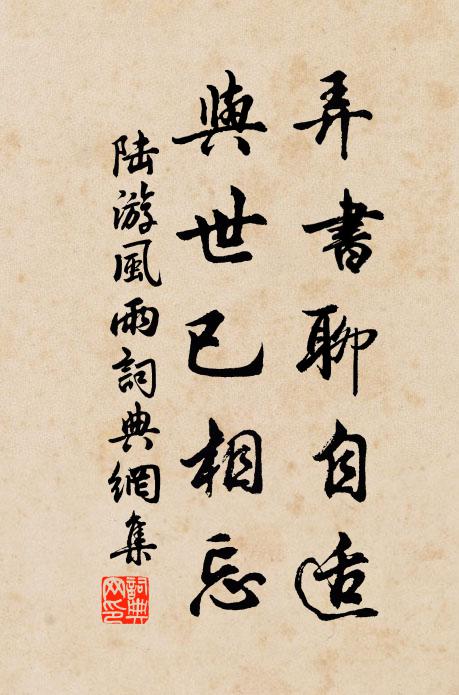 弄書聊自适
與世已相忘
陸游風雨詞典網集
詞典